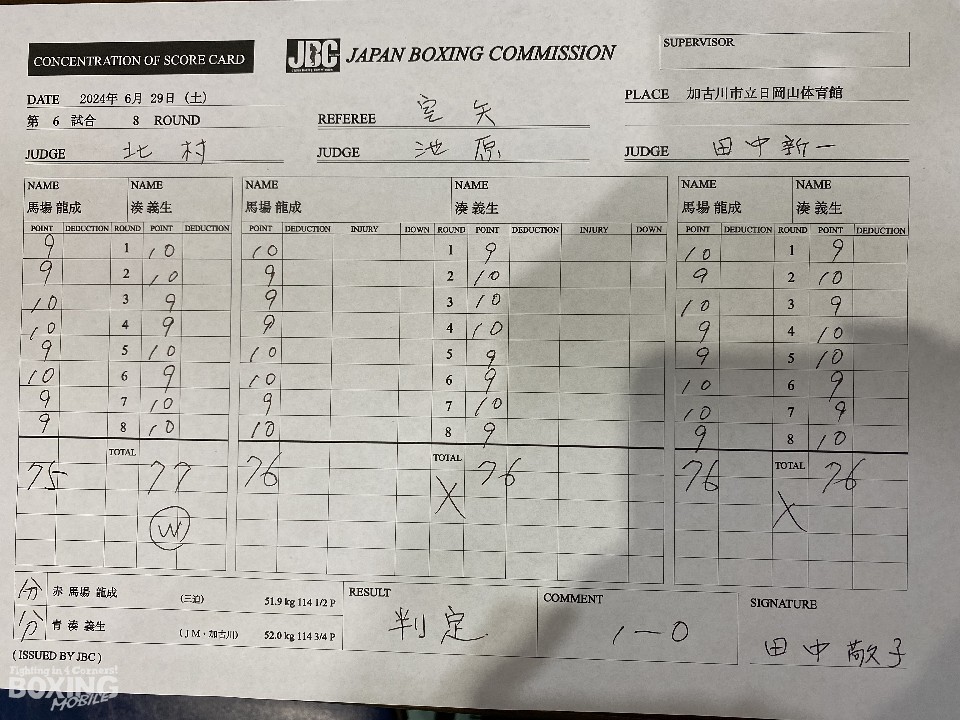 CONCENTRATION OF SCORE CARD
JBC JAPAN BOXING COMMISSION
SUPERVISOR
DATE 2024年 6月 29日 (土)
PLACE 加古川市立日岡山体育館
第 6 試合 8 ROUND
REFEREE 室矢
JUDGE 北村
JUDGE 池原
JUDGE 田中新一
NAME NAME NAME NAME NAME NAME
馬場 龍成 湊 義生 馬場 龍成 湊 義生 馬場 龍成 湊 義生
POINT DEDUCTION ROUND POINT DEDUCTION POINT DEDUCTION INJURY DOWN ROUND POINT DEDUCTION INJURY DOWN POINT DEDUCTION ROUND POINT DEDUCTION
9 1 10 10 1 9 10 1 9
9 2 10 9 2 10 9 2 10
10 3 9 9 3 10 10 3 9
10 4 9 9 4 10 9 4 10
9 5 10 10 5 9 9 5 10
10 6 9 10 6 9 10 6 9
9 7 10 9 7 10 10 7 9
9 8 10 10 8 9 9 8 10
TOTAL TOTAL TOTAL
75 77 76 76 76 76
X X
W
分 赤 馬場 龍成 (三迫) 51.9 kg 114 1/2 P
分 青 湊 義生 (JM・加古川) 52.0 kg 114 3/4 P
RESULT 判定
COMMENT 1-0
SIGNATURE 田中敬子
(ISSUED BY JBC)
Fighting in 4 Corners!
BOXING
MOBILE